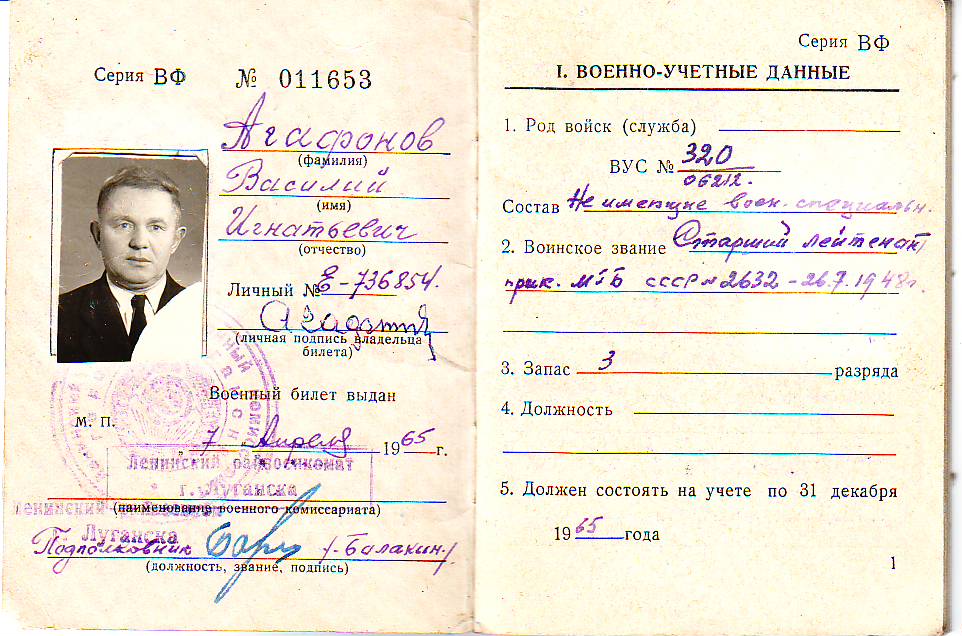 Серия ВФ № 011653
Агафонов
(фамилия)
Василий
(имя)
Игнатьевич
(отчество)
Личный № -736854.
(личная подпись владельца
билета)
Военный билет выдан
М. П.
„ 7 Апреля 1965 г.
Ленинский райвоенкомат
г. Луганска
Ленинский
(наименование военного комиссариата)
г. Луганска
Подполковник /-Балакин./
(должность, звание, подпись)
Серия ВФ
I. ВОЕННО-УЧЕТНЫЕ ДАННЫЕ
1. Род войск (служба)
ВУС № 320
06212.
Состав Не имеющие воен. специальн.
2. Воинское звание Старший лейтенант
прик. МГБ СССР № 2632 - 26.7.1948г.
3. Запас 3 разряда
4. Должность
5. Должен состоять на учете по 31 декабря
1965 года
1